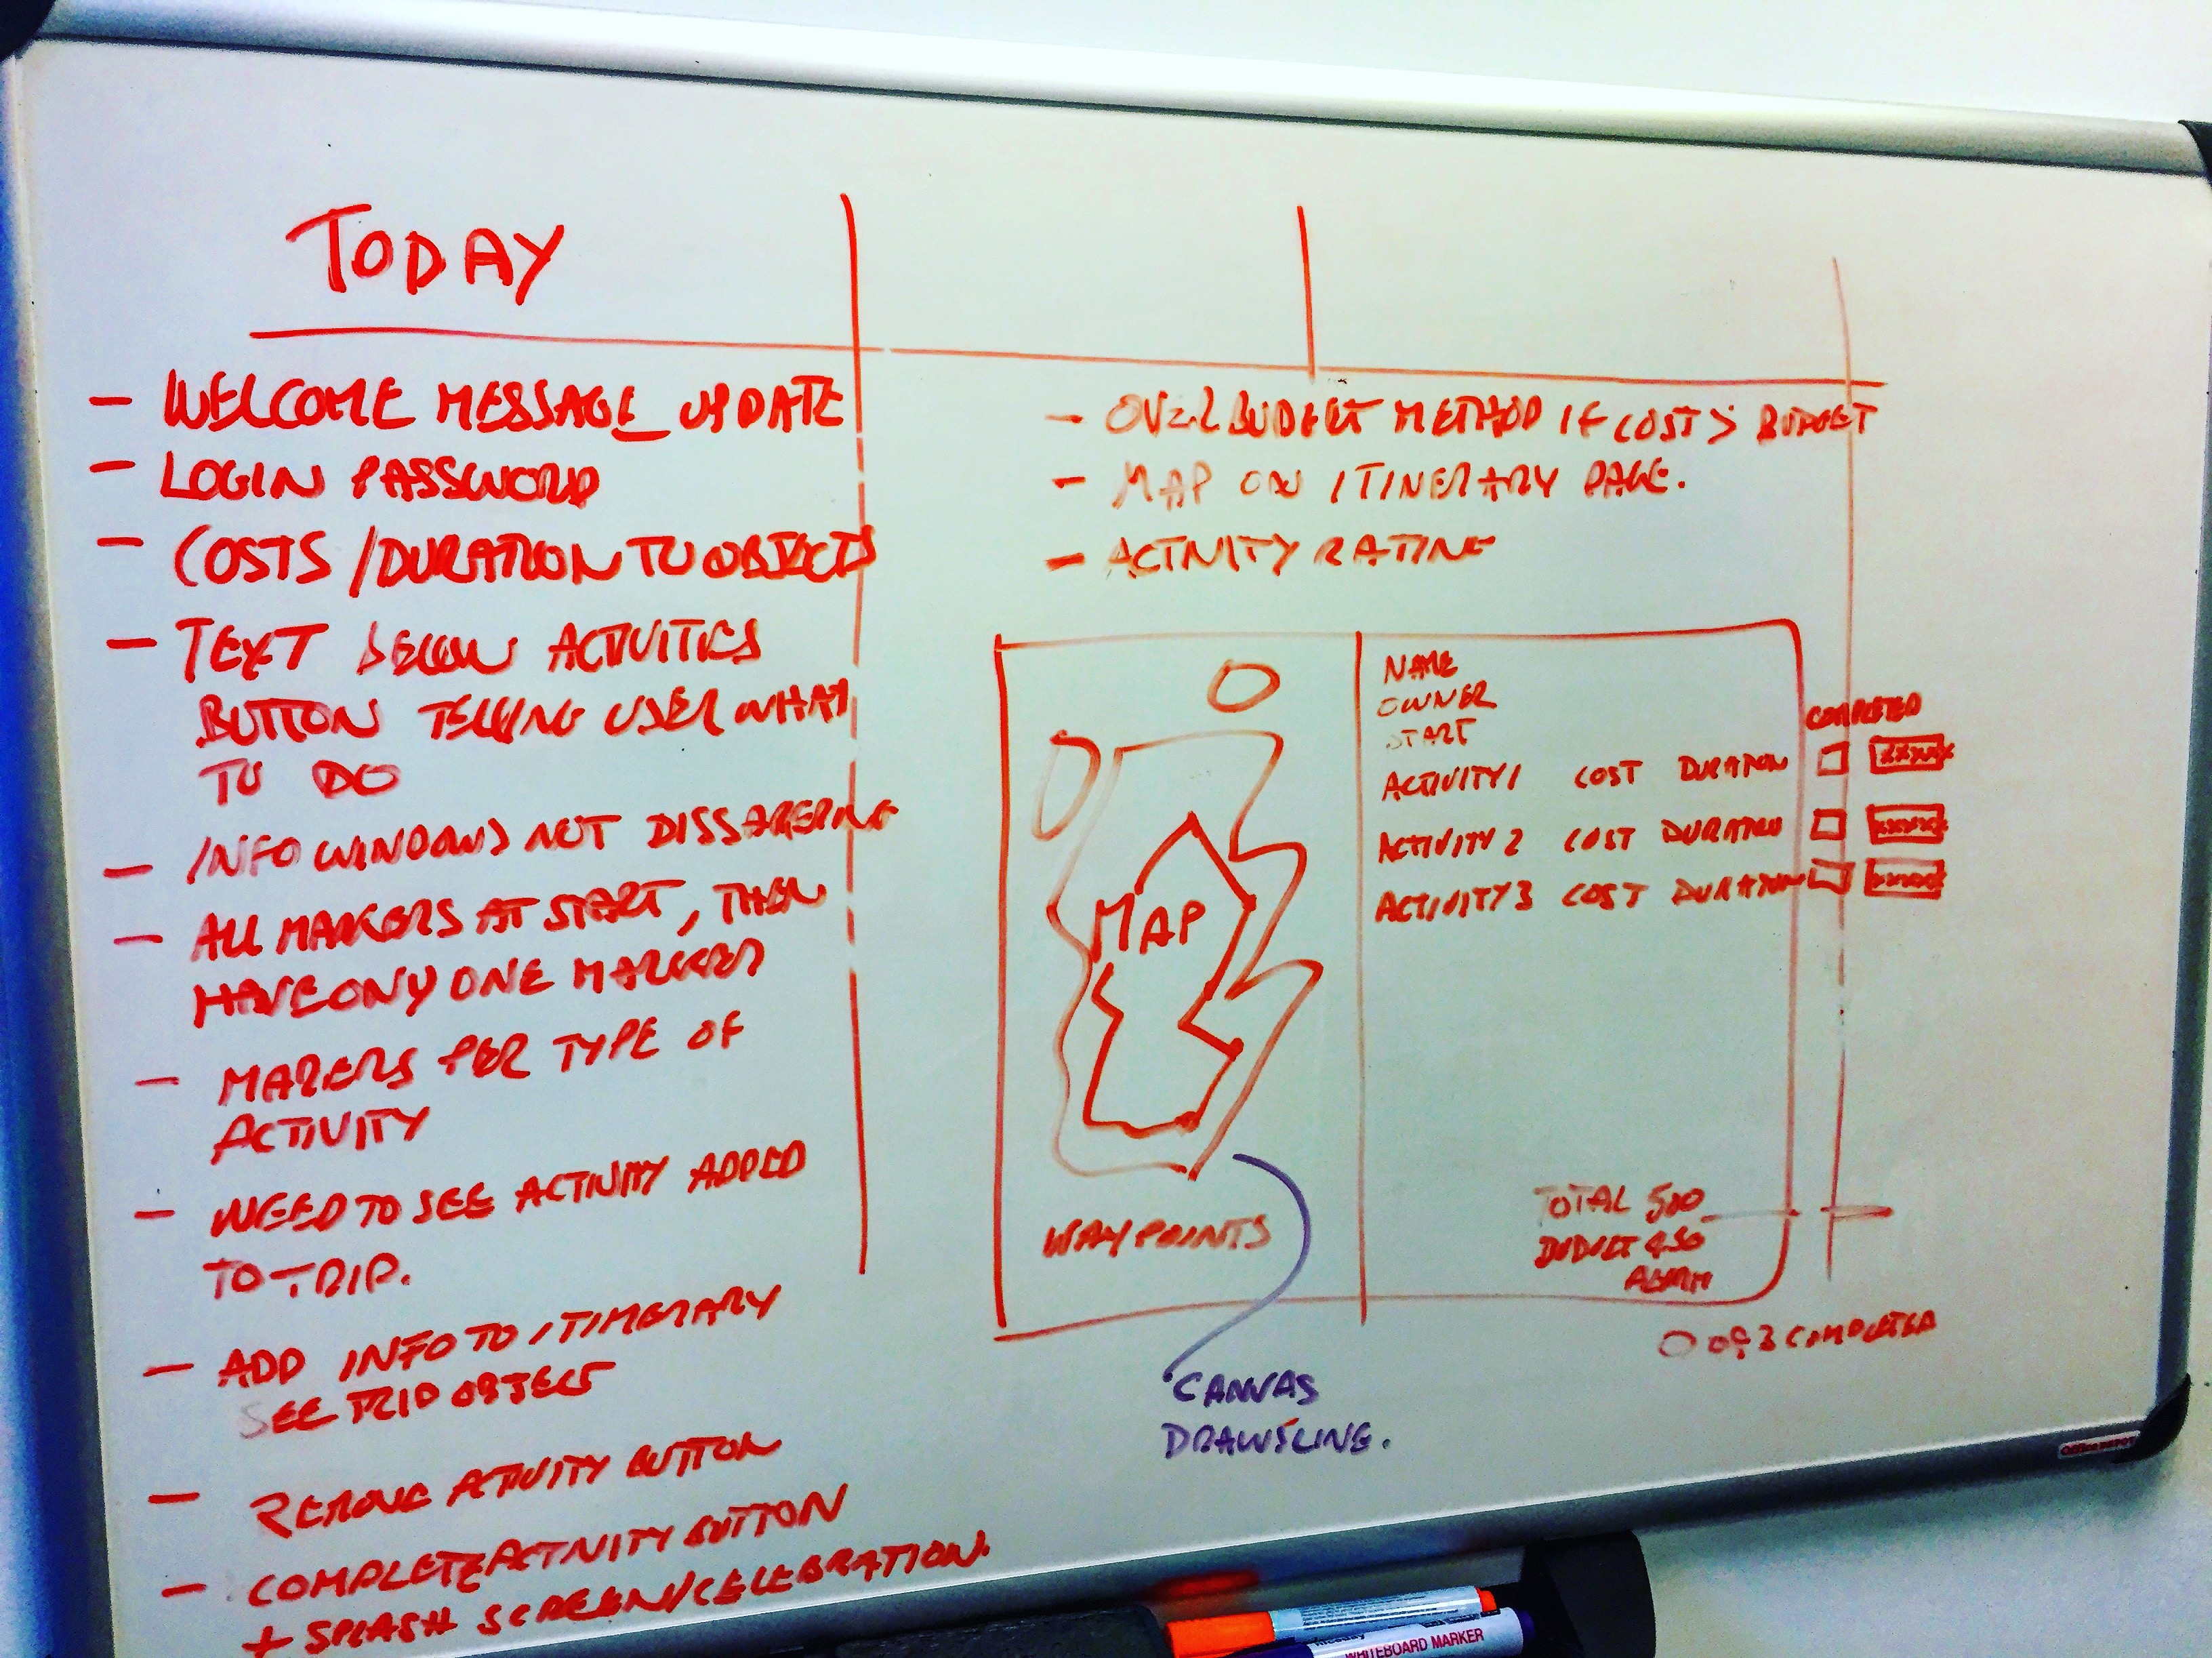 TODAY
- WELCOME MESSAGE_UPDATE
- LOGIN PASSWORD
- COSTS /DURATION TO OBJECTS
- TEXT BELOW ACTIVITIES
BUTTON TELLING USER WHAT
TO DO
- INFO WINDOWS NOT DISSAPERING
- ALL MARKERS AT START, THEN
HAVE ONY ONE MARKER
- MARKERS PER TYPE OF
ACTIVITY
- NEED TO SEE ACTIVITY ADDED
TO TRIP.
- ADD INFO TO ITINERARY
SEE TRIP OBJECT
- REMOVE ACTIVITY BUTTON
- COMPLETE ACTIVITY BUTTON
+ SPLASH SCREEN/CELEBRATION.
- OVER BUDGET METHOD IF COST > BUDGET
- MAP ON ITINERARY PAGE.
- ACTIVITY RATING
MAP
WAYPOINTS
CANVAS
DRAWSLINE.
NAME
OWNER
START
COMPLETED
ACTIVITY 1 COST DURATION
ACTIVITY 2 COST DURATION
ACTIVITY 3 COST DURATION
TOTAL 500
BUDGET 450
0 OF 3 COMPLETED
Office DEPOT
WHITEBOARD MARKER